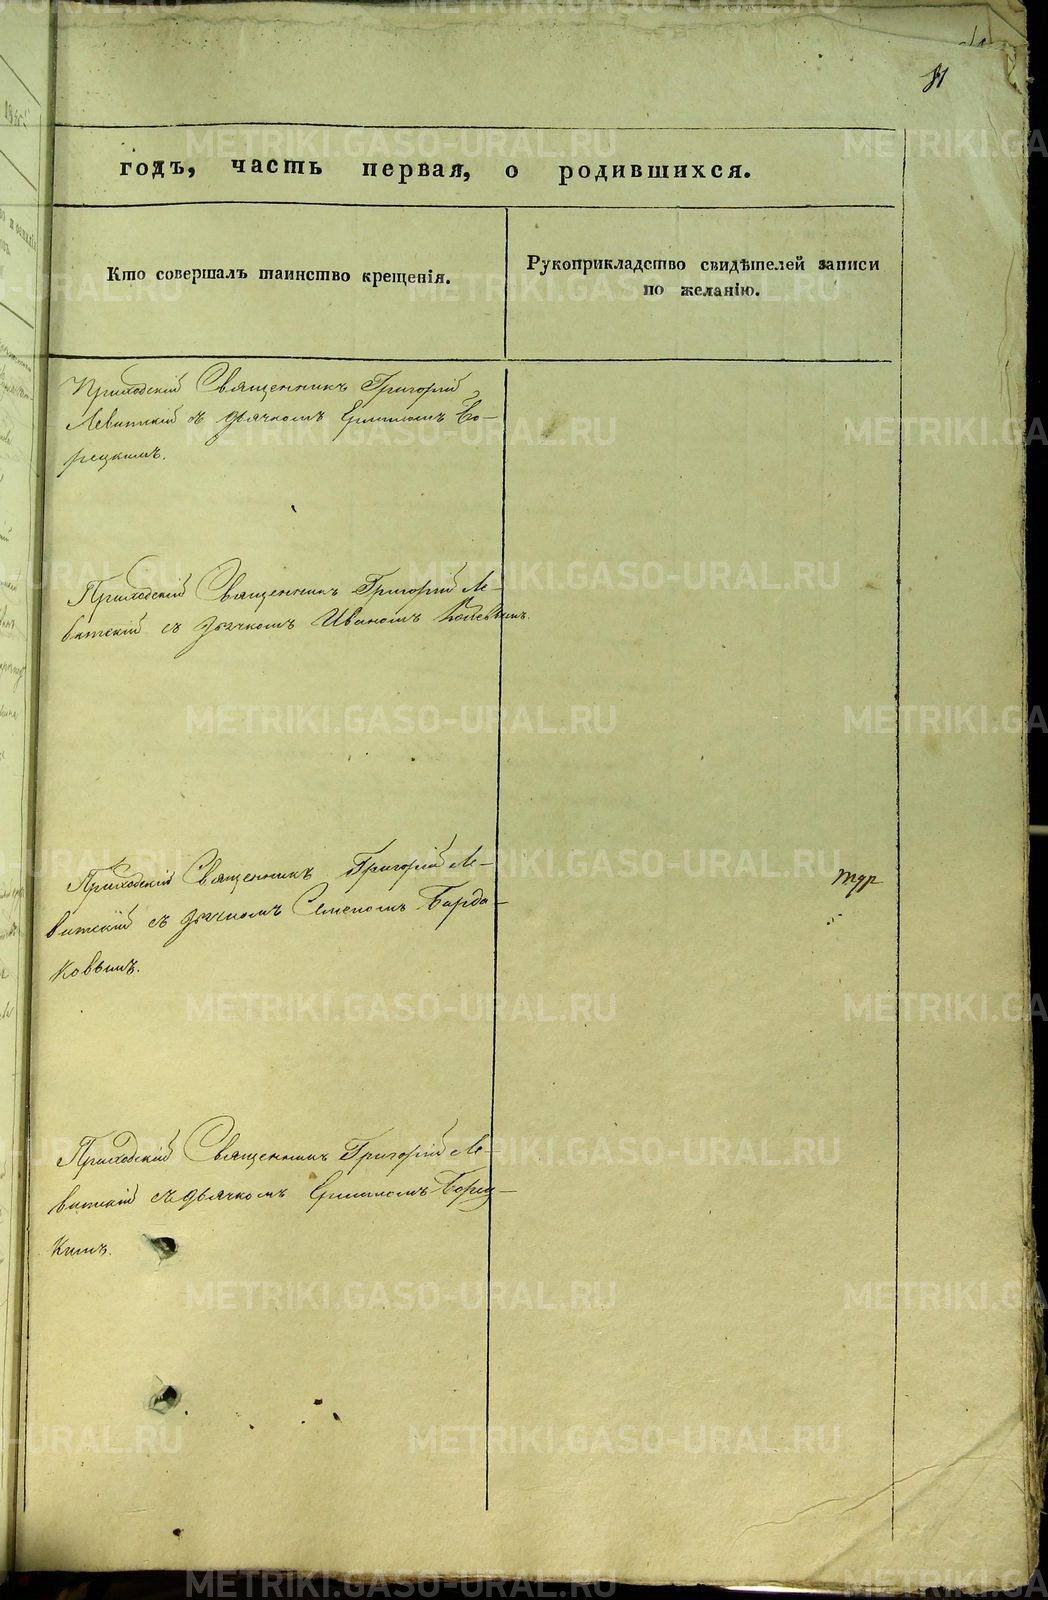 81
годъ, часть первая, о родившихся.
Кто совершалъ таинство крещенія.
Рукоприкладство свидѣтелей записи
по желанію.
Приходскій Священникъ Григорій
Левитскій съ дьячкомъ Ермиломъ Бо-
рецкимъ.
Приходскій Священникъ Григорій Ле-
витскій съ дьячкомъ Иваномъ
Приходскій Священникъ Григорій Ле-
витскій съ дьячкомъ Семеномъ Барда-
ковымъ.
Приходскій Священникъ Григорій Ле-
витскій съ дьячкомъ Ермиломъ Борец-
кимъ.
METRIKI.GASO-URAL.RU